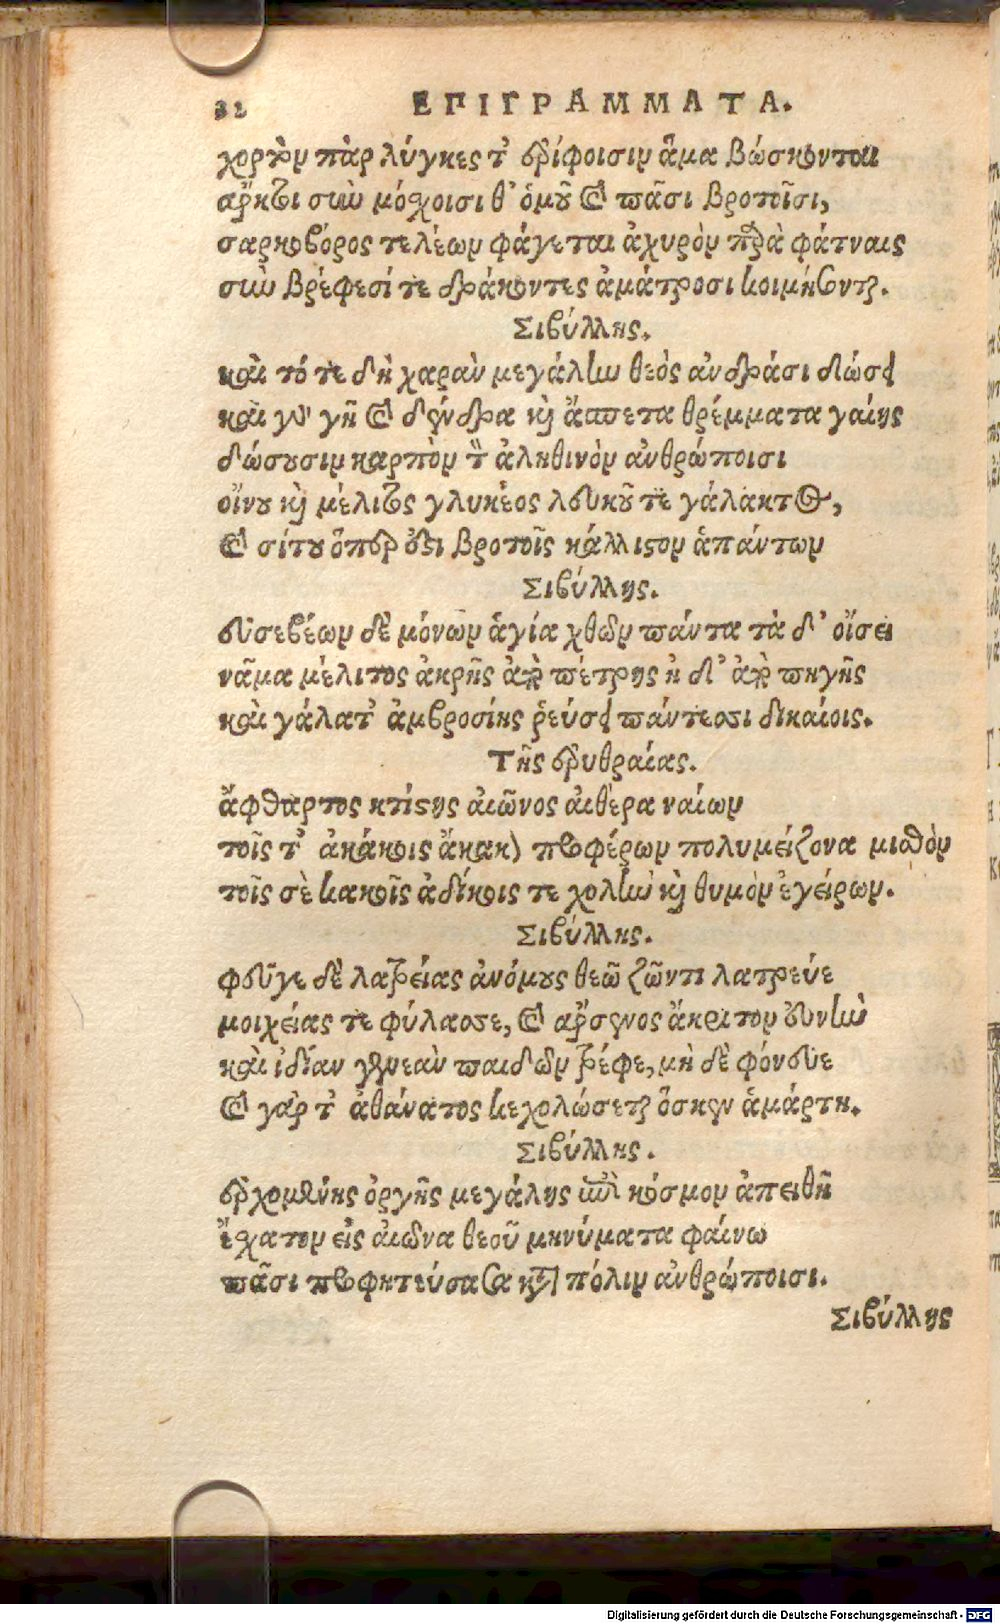 32 ΕΠΙΓΡΑΜΜΑΤΑ.
χορτὸν πὰρ λύγκες τ' ἐρίφοισιν ἅμα βώσκονται
ἄρκτοι σὺν μόσχοισι θ' ὁμοῦ καὶ πᾶσι βροτοῖσι,
σαρκοβόρος τε λέων φάγεται ἀχυρὸν παρὰ φάτναις
σὺν βρέφεσί τε δράκοντες ἀμάτροσι κοιμήσονται.
Σιβύλλης.
καὶ τό τε δὴ χαρὰν μεγάλην θεὸς ἀνδράσι δώσει
καὶ γὰρ γῆ καὶ δένδρα καὶ ἄσπετα θρέμματα γαίης
δώσουσιν καρπὸν τὸν ἀληθινὸν ἀνθρώποισι
οἴνου καὶ μέλιτος γλυκέος λευκοῦ τε γάλακτος,
καὶ σίτου ὅπερ ἐστι βροτοῖς κάλλιστον ἁπάντων
Σιβύλλης.
εὐσεβέων δὲ μόνων ἁγία χθὼν πάντα τὰ δ' οἴσει
νᾶμα μέλιτος ἀκρῆς ἀπὸ πέτρης ἠ δ' ἀπὸ πηγῆς
καὶ γάλατ' ἀμβροσίης ῥεύσει πάντεσσι δικαίοις.
Τῆς ἐρυθραίας.
ἄφθαρτος κτίστης αἰῶνος αἰθέρα ναίων
τοῖς τ' ἀκάκοις ἄκακον προφέρων πολυμείζονα μισθὸν
τοῖς σὲ κακοῖς ἀδίκοις τε χολὴν καὶ θυμὸν ἐγείρων.
Σιβύλλης.
φεῦγε δὲ λατρείας ἀνόμους θεῶ ζῶντι λατρεύε
μοιχείας τε φύλασσε, καὶ ἄρσενος ἄκριτον εὐνὴν
καὶ ἰδίαν γενεὰν παιδων τρέφε, μὴ δὲ φόνευε
καὶ γάρ τ' ἀθάνατος κεχολώσεται ὅσκεν ἁμάρτη.
Σιβύλλης.
ἐρχομένης ὀργῆς μεγάλης ἐπὶ κόσμον ἀπειθῆ
ἔσχατον εἰς αἰωνα θεοῦ μηνύματα φαίνω
πᾶσι προφητεύσασα κατὰ πόλιν ἀνθρώποισι.
Σιβύλλης
Digitalisierung gefördert durch die Deutsche Forschungsgemeinschaft - DFG